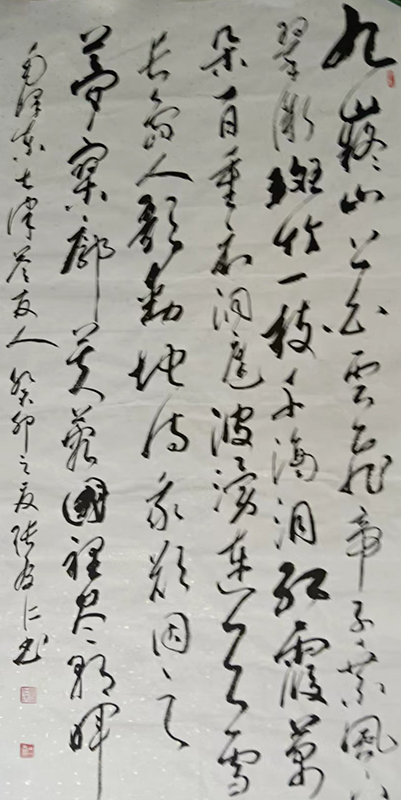 九嶷山上白雲飛帝子乘風下
翠微斑竹一枝千滴泪紅霞萬
朵百重衣洞庭波湧連天雪
長島人歌動地詩我欲因之
夢寥廓芙蓉國裡盡朝暉
毛澤東七律答友人 癸卯之夏張友仁書